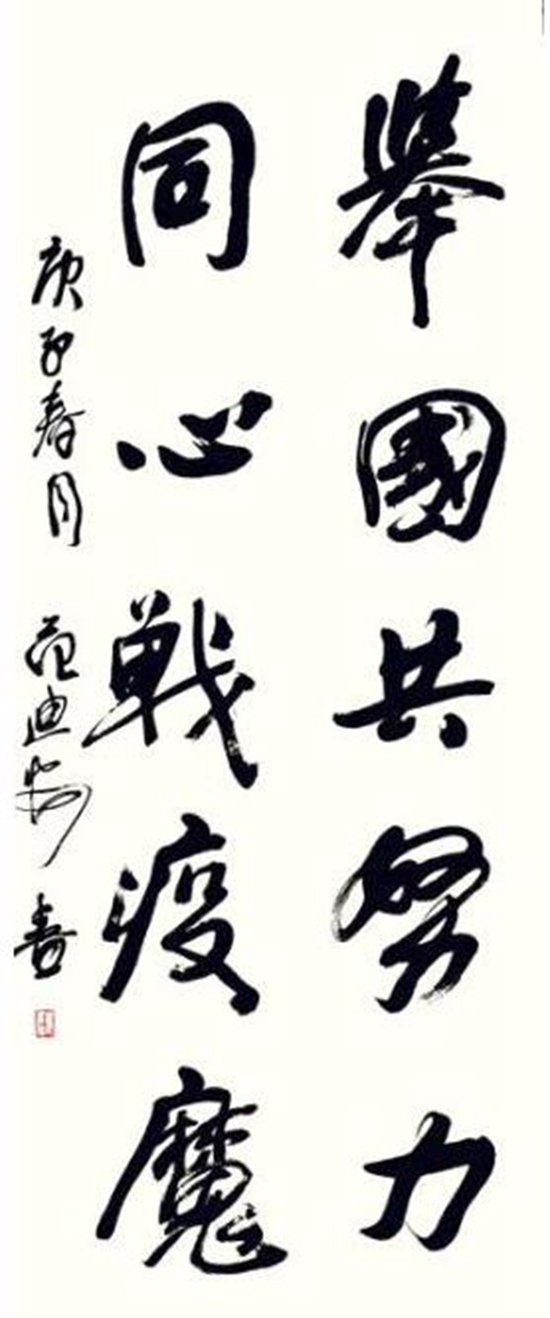 舉國共努力
同心戰疫魔
庚子春月 范迪安 書